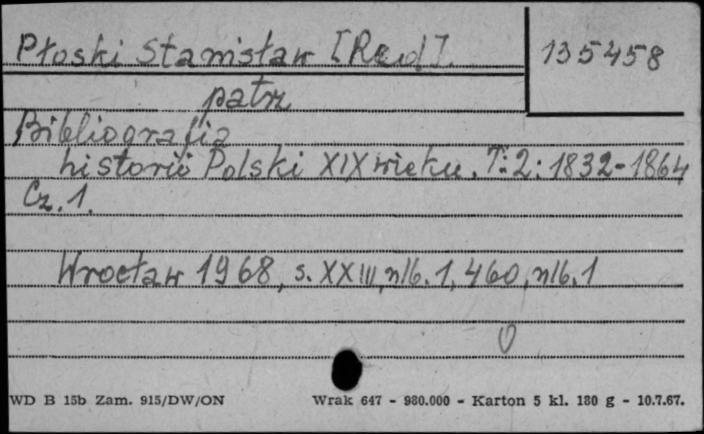 Płoski Stanisław [Red].
135458
patrz
Bibliografia
historii Polski XIX wieku. T. 2: 1832-1864
Cz. 1.
Wrocław 1968, s. XXIII, nlb. 1, 460, nlb. 1
WD B 15b Zam. 915/DW/ON Wrak 647 - 980.000 - Karton 5 kl. 180 g - 10.7.67.